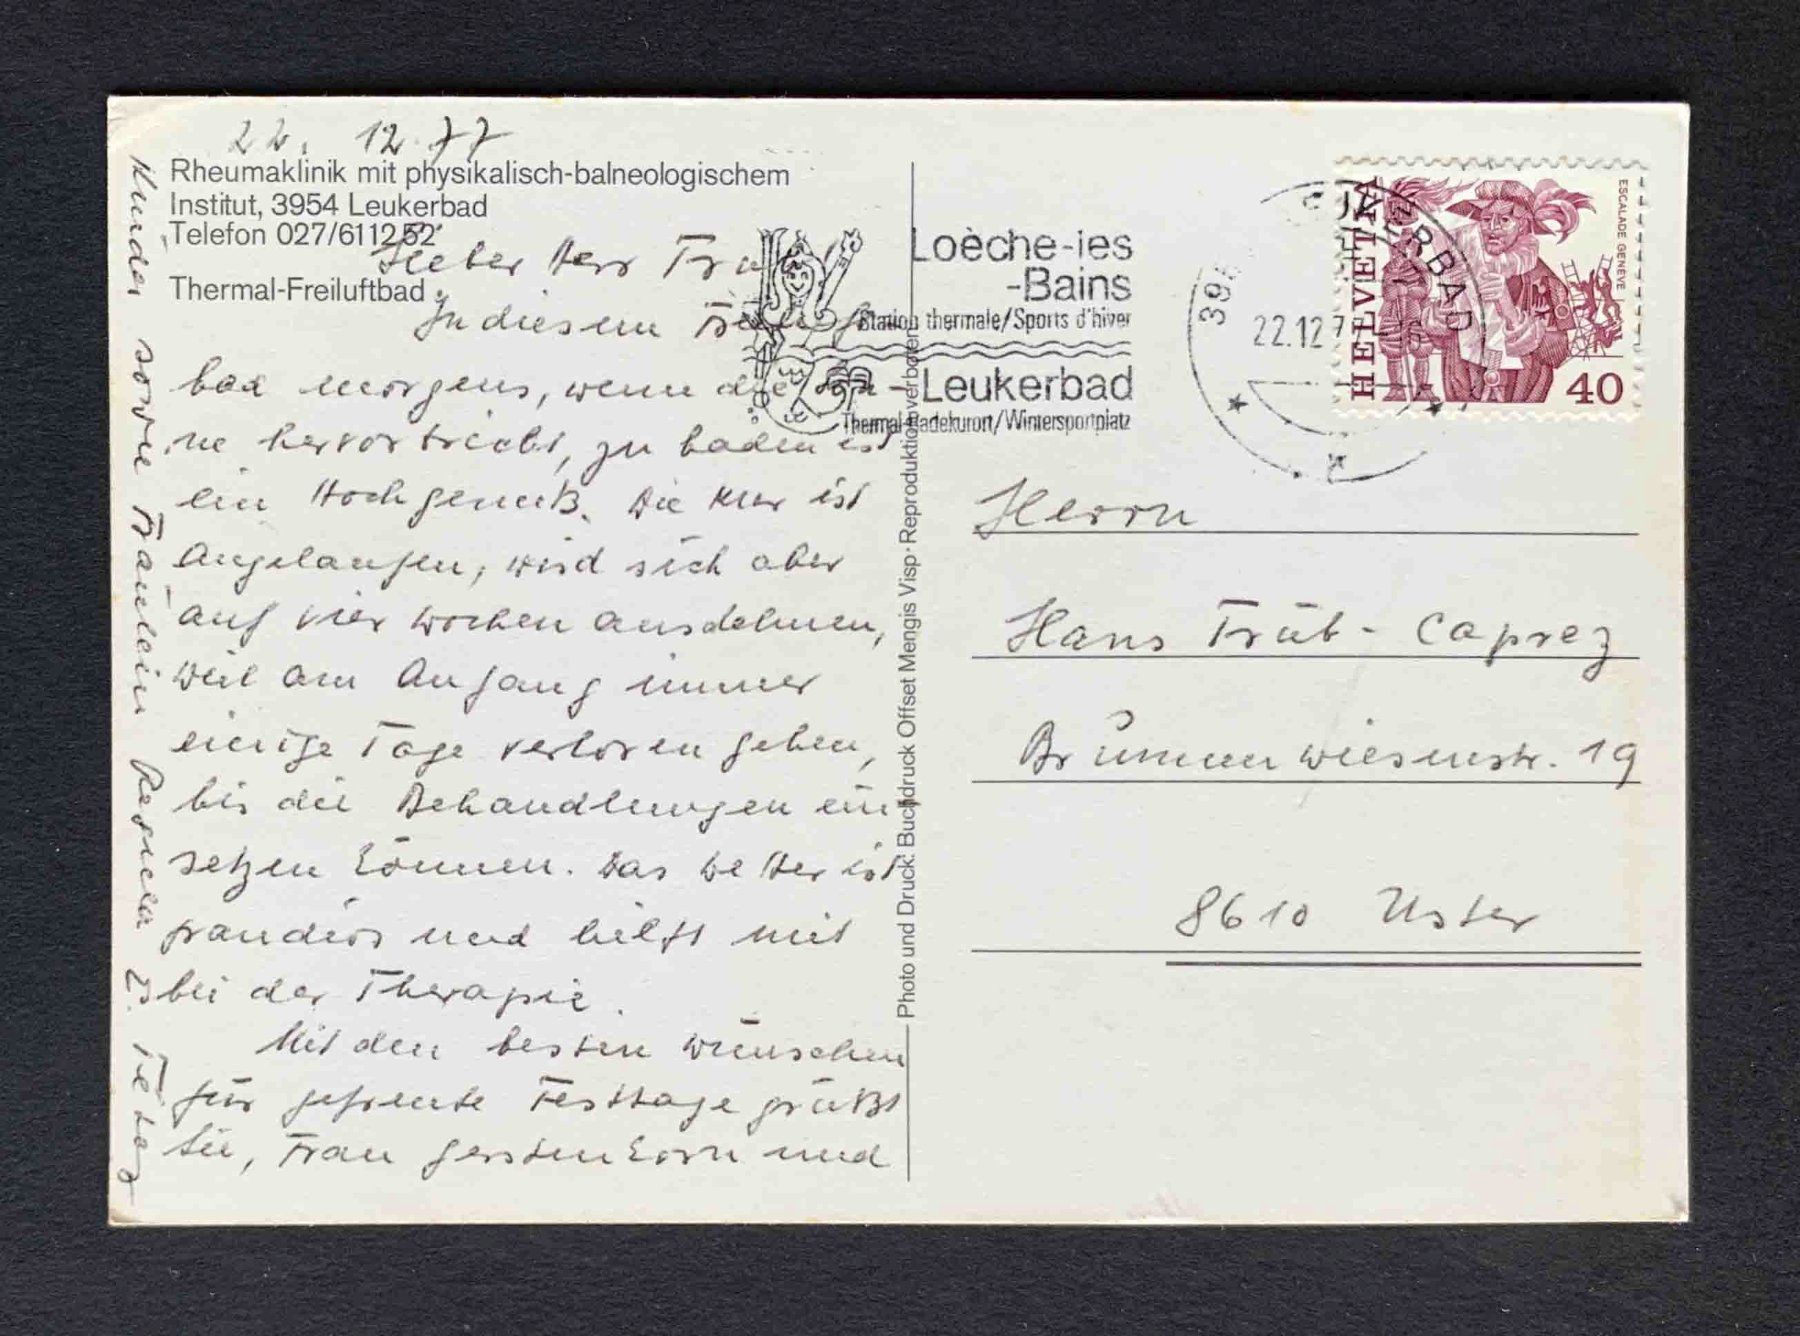 22. 12. 77
Rheumaklinik mit physikalisch-balneologischem
Institut, 3954 Leukerbad
Telefon 027/611252
Thermal-Freiluftbad
Lieber Herr
In diesem
bad morgens, wenn die
ne hervorbricht, zu baden ist
ein Hochgenuß. Die Kur ist
angelaufen, wird sich aber
auf vier Wochen ausdehnen,
weil am Anfang immer
einige Tage verloren gehen,
bis die Behandlungen ein
setzen können. Das Wetter ist
grandios und hilft mit
bei der Therapie.
Mit den besten Wünschen
für gefreute Festtage grüßt
Sie, Frau Gerstenkorn und
Kinder sowie Fräulein
Photo und Druck: Buchdruck Offset Mengis Visp · Reproduktion verboten
Loèche-les
-Bains
Station thermale/Sports d'hiver
Leukerbad
Thermal-Badekurort/Wintersportplatz
LEUKERBAD
22.12.77
HELVETIA
ESCALADE GENÈVE
40
Herrn
Hans Trüb-Caprez
Brunnenwiesenstr. 19
8610 Uster